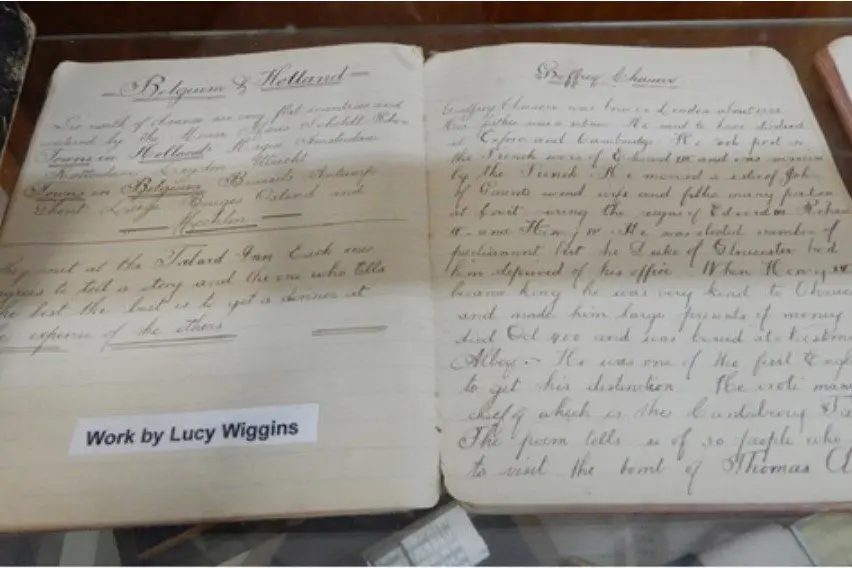 Belgium & Holland
North of France are very flat countries and
watered by the Meuse Scheldt Rhine
Towns in Holland Hague Amsterdam
Rotterdam Leyden Utrecht
Towns in Belgium Brussels Antwerp
Ghent Liege Bruges Ostend and
Mechlin
They met at the Tabard Inn Each one
agrees to tell a story and the one who tells
the best the last is to get a dinner at
the expense of the others
Work by Lucy Wiggins
Geoffrey Chaucer
Geoffrey Chaucer was born in London about
His father was a He said to have studied
at Oxford and Cambridge He took part in
the French wars of Edward III and was
by the French He married a sister of John
of Gaunts wife and filled many
at Court during the reigns of Edward III Richard
II and Henry IV He was elected member of
parliament but the Duke of Gloucester had
him deprived of his office When Henry IV
became king he was very kind to Chaucer
and made him large presents of money
died Oct 400 and was buried at
Abbey He was one of the first
to get his distinction He wrote many
chief of which is the
The poem tells us of 30 people who
to visit the tomb of Thomas